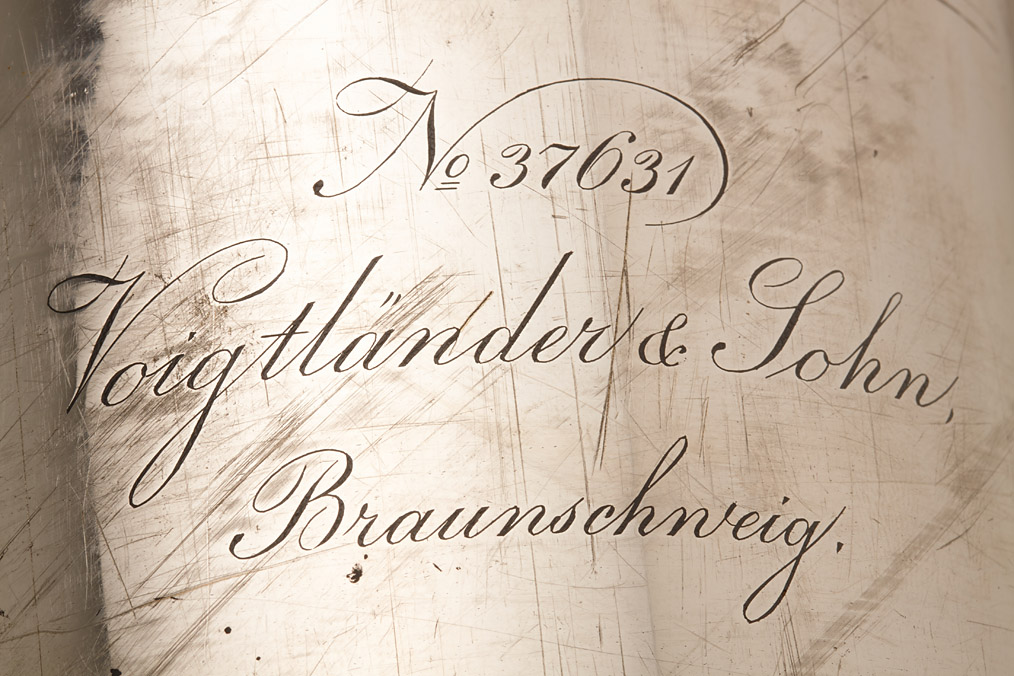 No 37631
Voigtländer & Sohn,
Braunschweig.